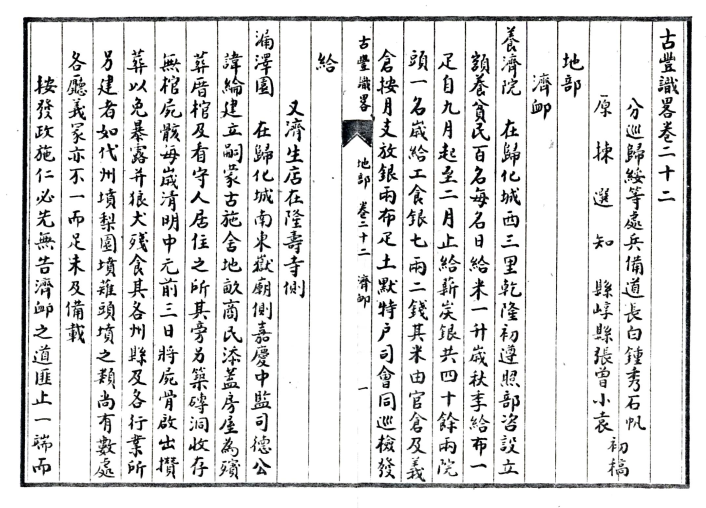 古豐識畧卷二十二
分巡歸綏等處兵備道長白鍾秀石帆
原揀選知縣崞縣張曾小袁
初稿
地部
濟卹
養濟院　在歸化城西三里乾隆初遵照部咨設立
額養貧民百名每名日給米一升歲秋季給布一
疋自九月起至二月止給薪炭銀共四十餘兩院
頭一名歲給工食銀七兩二錢其米由官倉及義
倉按月支放銀兩布疋土默特户司會同巡檢發
古豐識畧　地部　卷二十二　濟卹　一
給
又濟生店在隆壽寺側
漏澤園　在歸化城南東嶽廟側嘉慶中監司德公
諱綸建立嗣蒙古施舍地畝商民添蓋房屋為殯
葬厝棺及看守人居住之所其旁另築磚洞收存
無棺屍骸每歲清明中元前三日將屍骨啟出攢
葬以免暴露并狼犬殘食其各州縣及各行業所
另建者如代州墳梨園墳雞頭墳之類尚有數處
各廳義冢亦不一而足未及備載
按發政施仁必先無告濟卹之道匪止一端而